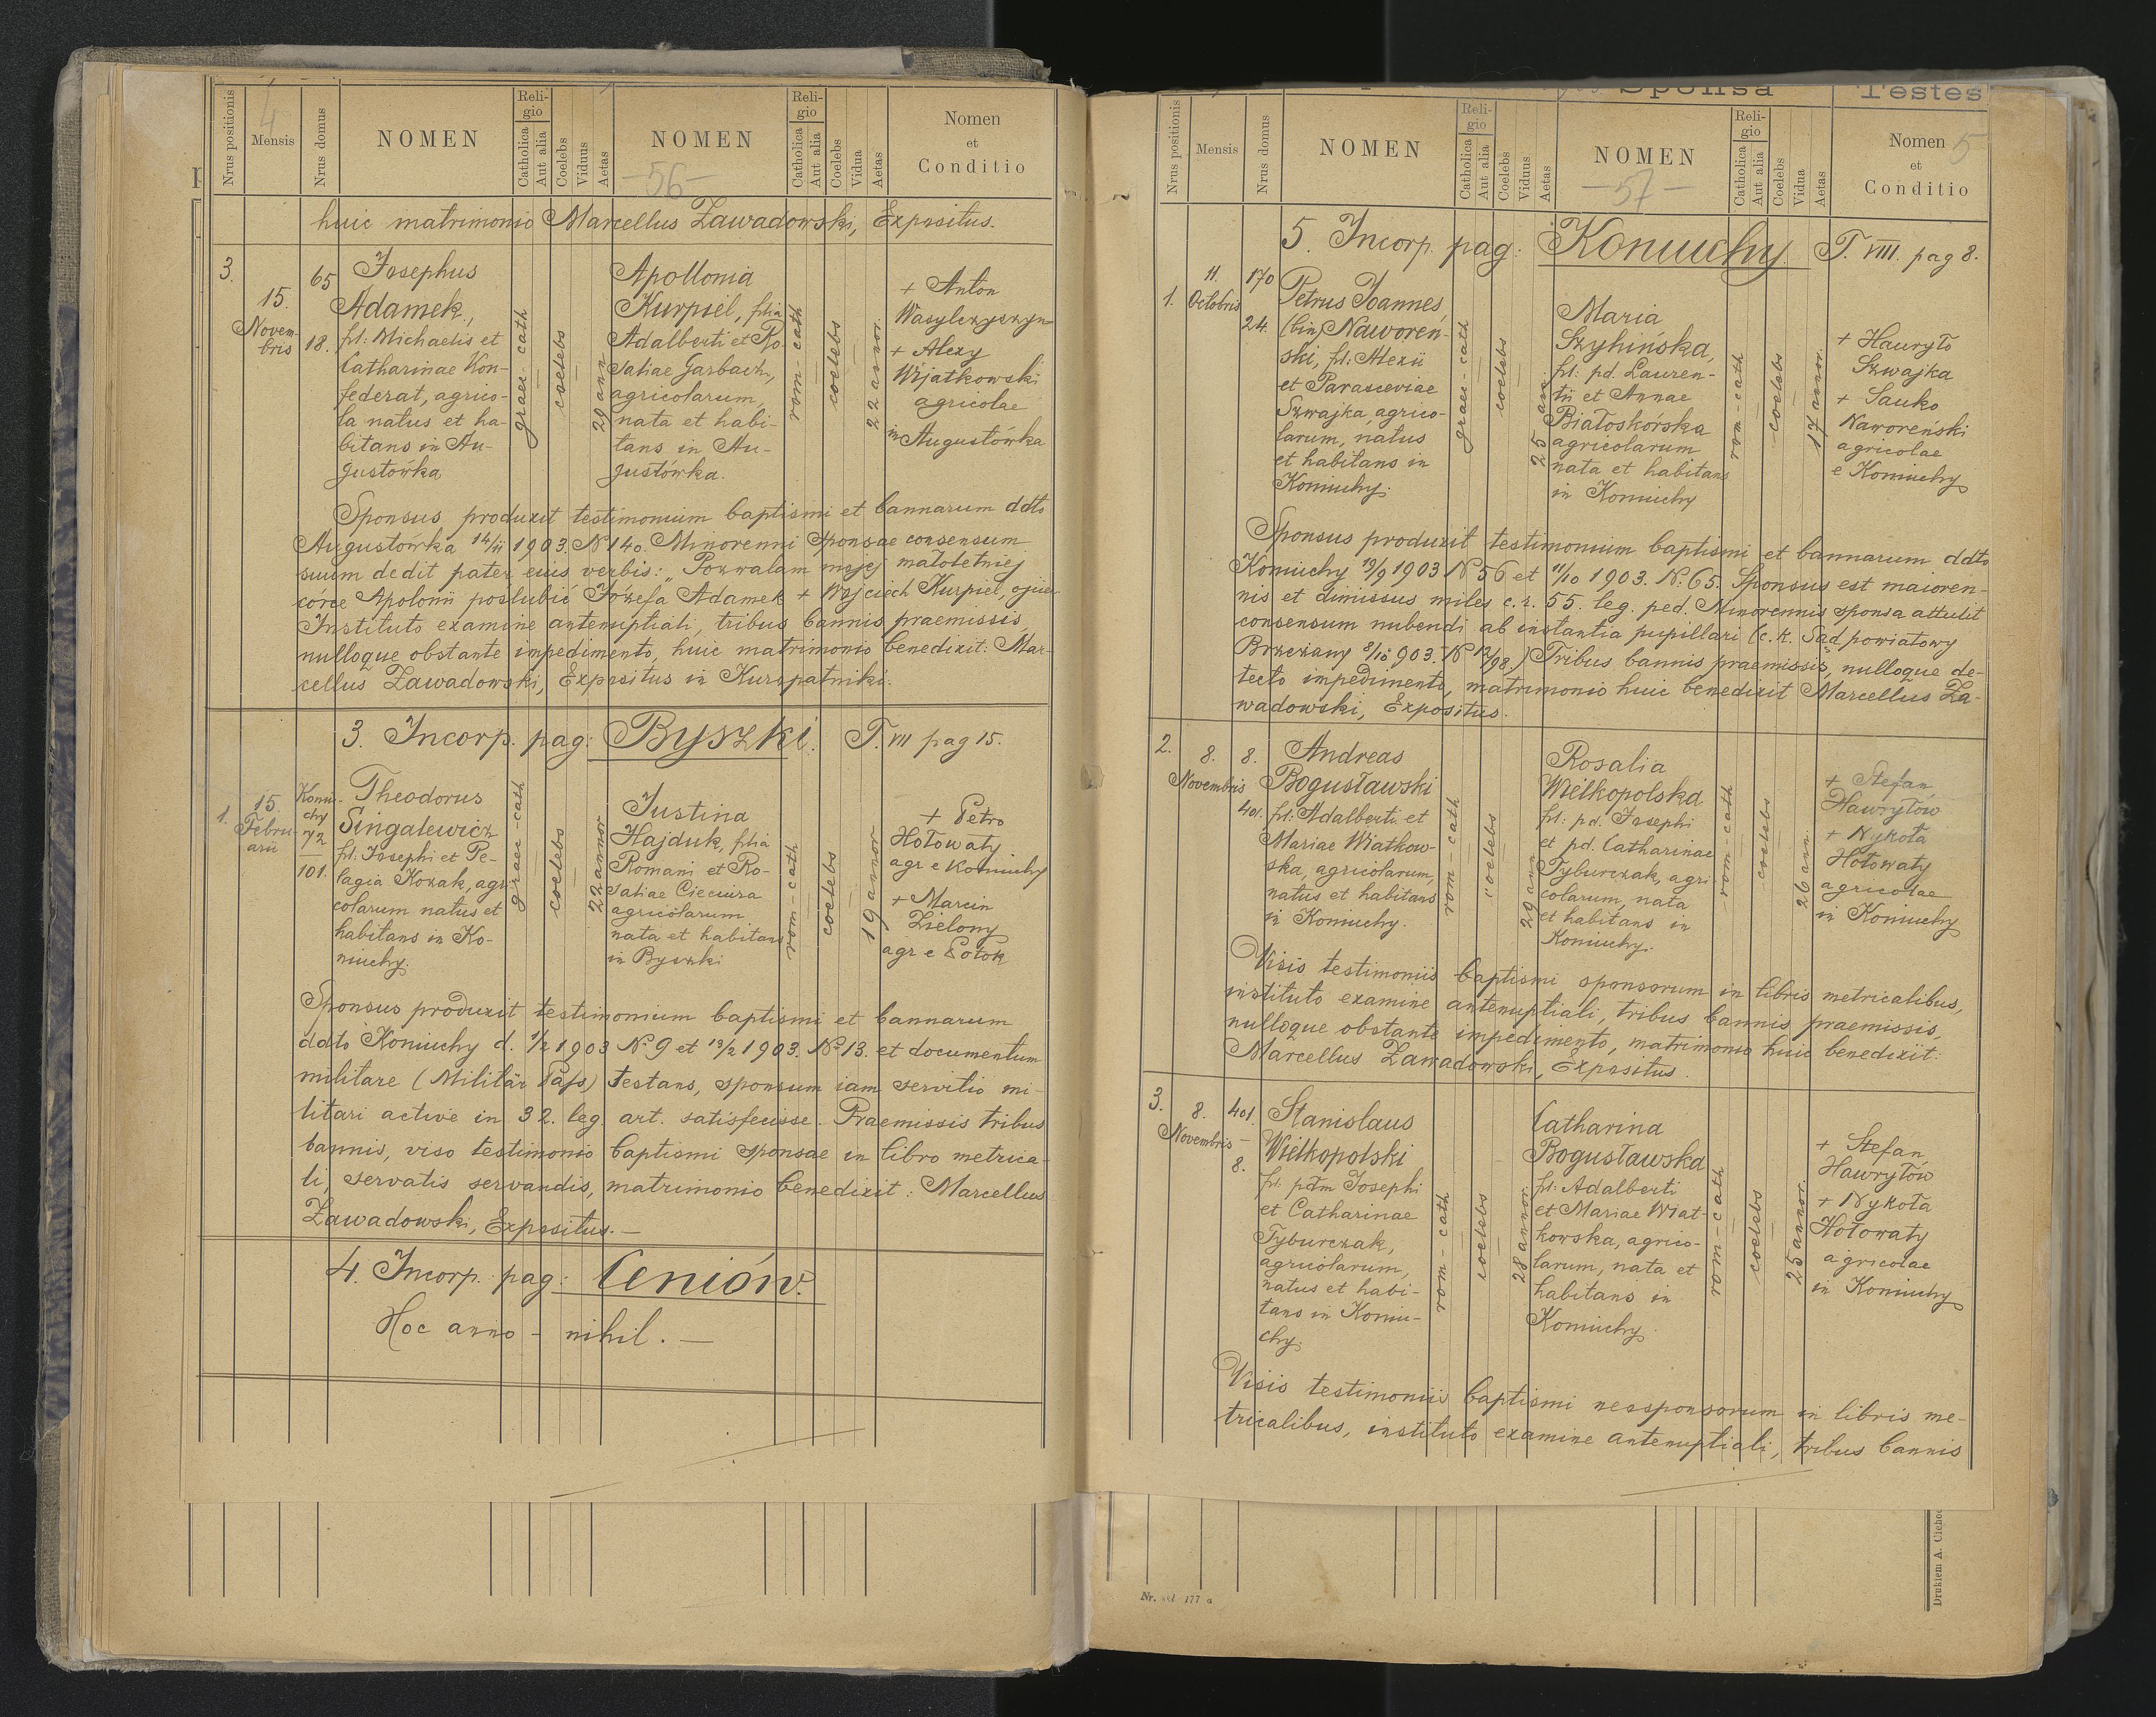 4
Nrus positionis
Mensis
Nrus domus
NOMEN
Religio
Catholica
Aut alia
Coelebs
Viduus
Aetas
NOMEN
Religio
Catholica
Aut alia
Coelebs
Vidua
Aetas
Nomen
et
Conditio
- 56 -
huic matrimonio Marcellus Zawadowski, Expositus.
3.
15.
Novem-
bris
65
18.
Josephus
Adamek,
fil: Michaelis et
Catharinae Kon-
federat, agrico-
la natus et ha-
bitans in Au-
gustówka
graec-cath
coelebs
29 ann
Apollonia
Kurpiel, filia
Adalberti et Ro-
saliae Garbacz,
agricolarum,
nata et habi-
tans in Au-
gustówka.
rom-cath
coelebs
22 annor.
+ Anton
Wasylczyszyn
+ Alexy
Wjatkowski
agricolae
in Augustówka
Sponsus produxit testimonium baptismi et bannarum ddto
Augustówka 14/11 1903. N 140. Minorenni sponsae consensum
suum dedit pater eius verbis: "Pozwalam mojej małoletniej
córce Apolonii poślubić Józefa Adamek + Wojciech Kurpiel, ojciec
Instituto examine antenuptiali, tribus bannis praemissis,
nulloque obstante impedimento, huic matrimonio benedixit: Mar-
cellus Zawadowski, Expositus in Kuropatniki.
3. Incorp. pag: Byszki. T. VII pag 15.
1.
15
Febru-
arii
Koniu-
chy
72
101.
Theodorus
Singalewicz
fil: Josephi et Pe-
lagia Kozak, agri
colarum natus et
habitans in Ko-
niuchy.
graec-cath
coelebs
22 annor
Justina
Hajduk, filia
Romani et Ro-
saliae Cieciura
agricolarum
nata et habitans
in Byszki
rom-cath
coelebs
19 annor
+ Petro
Hołowaty
agr e Koniuchy
+ Marcin
Zielony
agr e Potok
Sponsus produxit testimonium baptismi et bannarum
ddto Koniuchy d. 1/2 1903 N. 9 et 13/2 1903. N. 13. et documentum
militare (Militär Paſs) testans, sponsum iam servitio mi-
litari active in 32. leg. art. satisfecisse. Praemissis tribus
bannis, viso testimonio baptismi sponsae in libro metrica-
li, servatis servandis, matrimonio benedixit: Marcellus
Zawadowski, Expositus. —
4. Incorp. pag: Ceniów.
Hoc anno - nihil. —
Sponsa
Testes
Nrus positionis
Mensis
Nrus domus
NOMEN
Religio
Catholica
Aut alia
Coelebs
Viduus
Aetas
NOMEN
- 57 -
Religio
Catholica
Aut alia
Coelebs
Vidua
Aetas
Nomen
et
Conditio
5
5. Incorp. pag: Koniuchy T. VIII. pag 8.
1.
11.
Octobris
170
24.
Petrus Joannes
(bin) Naworeń-
ski, fil: Alexii
et Parasceviae
Szwajka, agrico-
larum, natus
et habitans in
Koniuchy.
graec-cath
coelebs
25 ann.
Maria
Szyhińska,
fil: pd. Lauren-
tii et Annae
Białoskórska
agricolarum
nata et habitans
in Koniuchy
rom-cath
coelebs
17 annor.
+ Hauryło
Szwajka
+ Sauko
Naworeński
agricolae
e Koniuchy
Sponsus produxit testimonium baptismi et bannarum ddto
Koniuchy 13/9 1903 N. 56 et 11/10 1903. N. 65. Sponsus est maioren-
nis et dimissus miles c. r. 55. leg. ped. Minorennis sponsa attulit
consensum nubendi ab instantia pupillari (c. k. Sąd powiatowy
Brzeżany 8/10 903. N 12/98.) Tribus bannis praemissis, nulloque de-
tecto impedimento, matrimonio huic benedixit Marcellus Za-
wadowski, Expositus.
2.
8.
Novembris
8.
401.
Andreas
Bogusławski
fil: Adalberti et
Mariae Wiatkow-
ska, agricolarum,
natus et habitans
in Koniuchy.
rom-cath
coelebs
29 ann
Rosalia
Wielkopolska
fil: pd. Josephi
et pd. Catharinae
Tyburczak, agri
colarum, nata
et habitans in
Koniuchy.
rom-cath
coelebs
26 ann.
+ Stefan
Hawryłów
+ Nykoła
Hołowaty
agricolae
in Koniuchy
Visis testimoniis baptismi sponsorum in libris metricalibus,
instituto examine antenuptiali, tribus bannis praemissis,
nulloque obstante impedimento, matrimonio huic benedixit:
Marcellus Zawadowski, Expositus.
3.
8.
Novembris
401.
8.
Stanislaus
Wielkopolski
fil: pdm Josephi
et Catharinae
Tyburczak,
agricolarum,
natus et habi-
tans in Koniu-
chy.
rom-cath
coelebs
28 annor.
Catharina
Bogusławska
fil: Adalberti
et Mariae Wiat-
kowska, agrico-
larum, nata et
habitans in
Koniuchy.
rom-cath
coelebs
25 annor.
+ Stefan
Hawryłów
+ Nykoła
Hołowaty
agricolae
in Koniuchy
Visis testimoniis baptismi neosponsorum in libris me-
tricalibus, instituto examine antenuptiali, tribus bannis
177 a
Drukiem A.